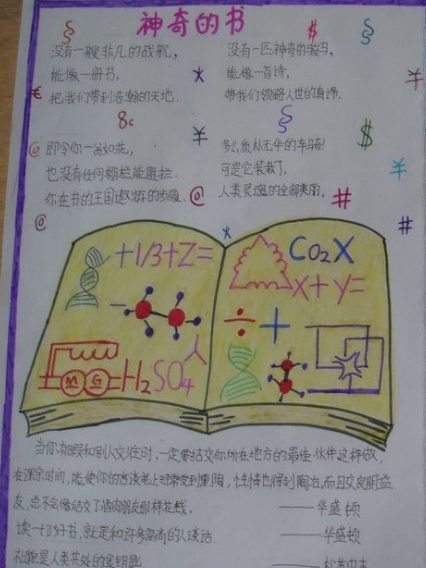 神奇的书
没有一艘非凡的战舰，
能像一册书，
把我们带到浩瀚的天地．
没有一匹神奇的骏马，
能像一首诗，
带我们领略人世的真谛．
即令你一贫如洗，
也没有任何栅栏能阻拦．
你在书的王国遨游的步履．
多么质朴无华的车骑！
可是它装载了，
人类灵魂的全部美丽．
+1/3+Z=
CO2X
X+y=
÷ +
M G
H2SO4
当你有暇和别人交往时，一定要结交你所在地方的最佳伙伴这样做，
在课余时间，能使你的言谈举止经常受到熏陶，性情也得到陶冶，而且交良朋益
友，总不会像结交了酒肉朋友那样花钱．
——华盛顿
读一切好书，就是和许多高尚的人谈话．
——华盛顿
礼貌是人类共处的金钥匙